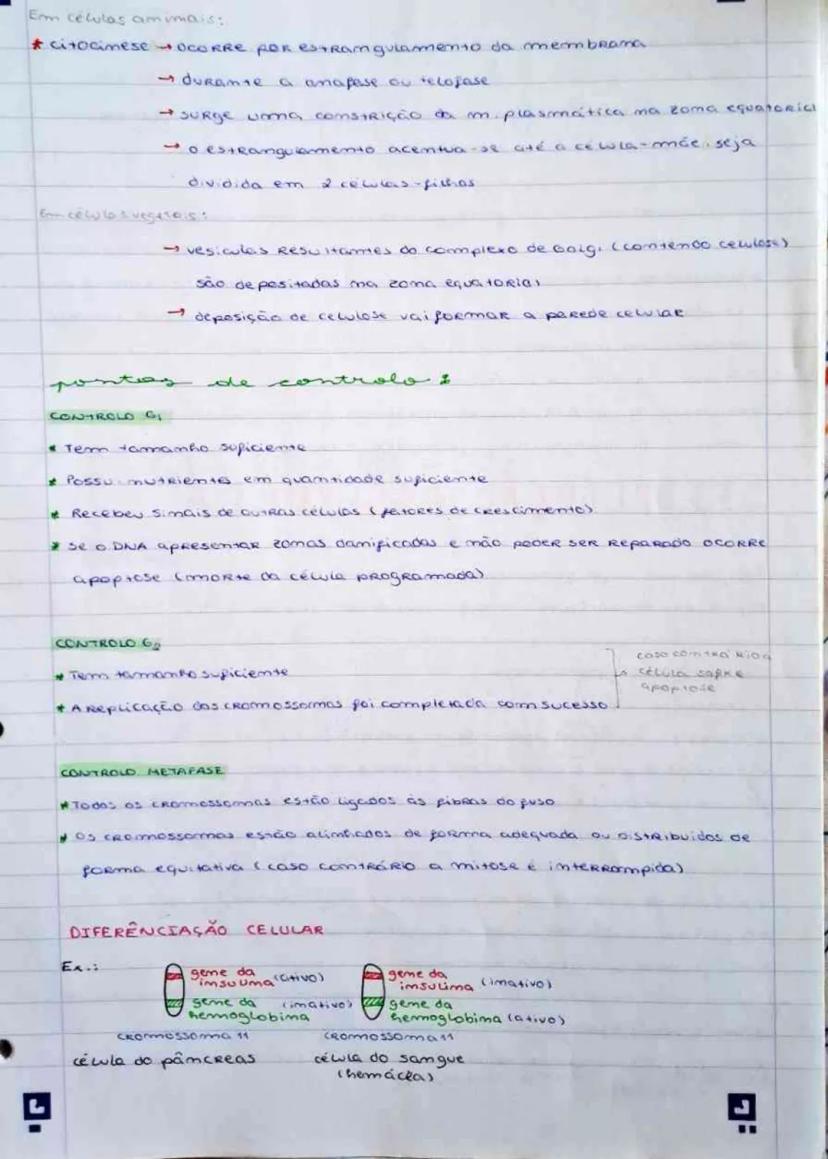 Em células animais:
* citocinese → ocorre por estrangulamento da membrana
→ durante a anafase ou telofase
→ surge uma constrição da m. plasmática na zona equatorial
→ o estrangulamento acentua-se até a célula-mãe, seja
dividida em 2 células-filhas
Em células vegetais:
→ vesículas resultantes do complexo de Golgi (contendo celulose)
são depositadas na zona equatorial
→ deposição de celulose vai formar a parede celular
pontos de controlo:
CONTROLO G1
* Tem tamanho suficiente
* Possui nutrientes em quantidade suficiente
* Recebeu sinais de outras células (fatores de crescimento)
* Se o DNA apresentar zonas danificadas e não poder ser reparado ocorre
apoptose (morte da célula programada)
CONTROLO G2
* Tem tamanho suficiente
* A replicação dos cromossomas foi completada com sucesso
caso contrário a
↳ célula sofre
apoptose
CONTROLO METAFASE
* Todos os cromossomas estão ligados às fibras do fuso
* Os cromossomas estão alinhados de forma adequada ou distribuidos de
forma equitativa (caso contrário a mitose é interrompida)
DIFERÊNCIAÇÃO CELULAR
Ex.:
gene da insulina (ativo)
gene da hemoglobina (inativo)
cromossoma 11
célula do pâncreas
gene da insulina (inativo)
gene da hemoglobina (ativo)
cromossoma 11
célula do sangue
(hemácea)